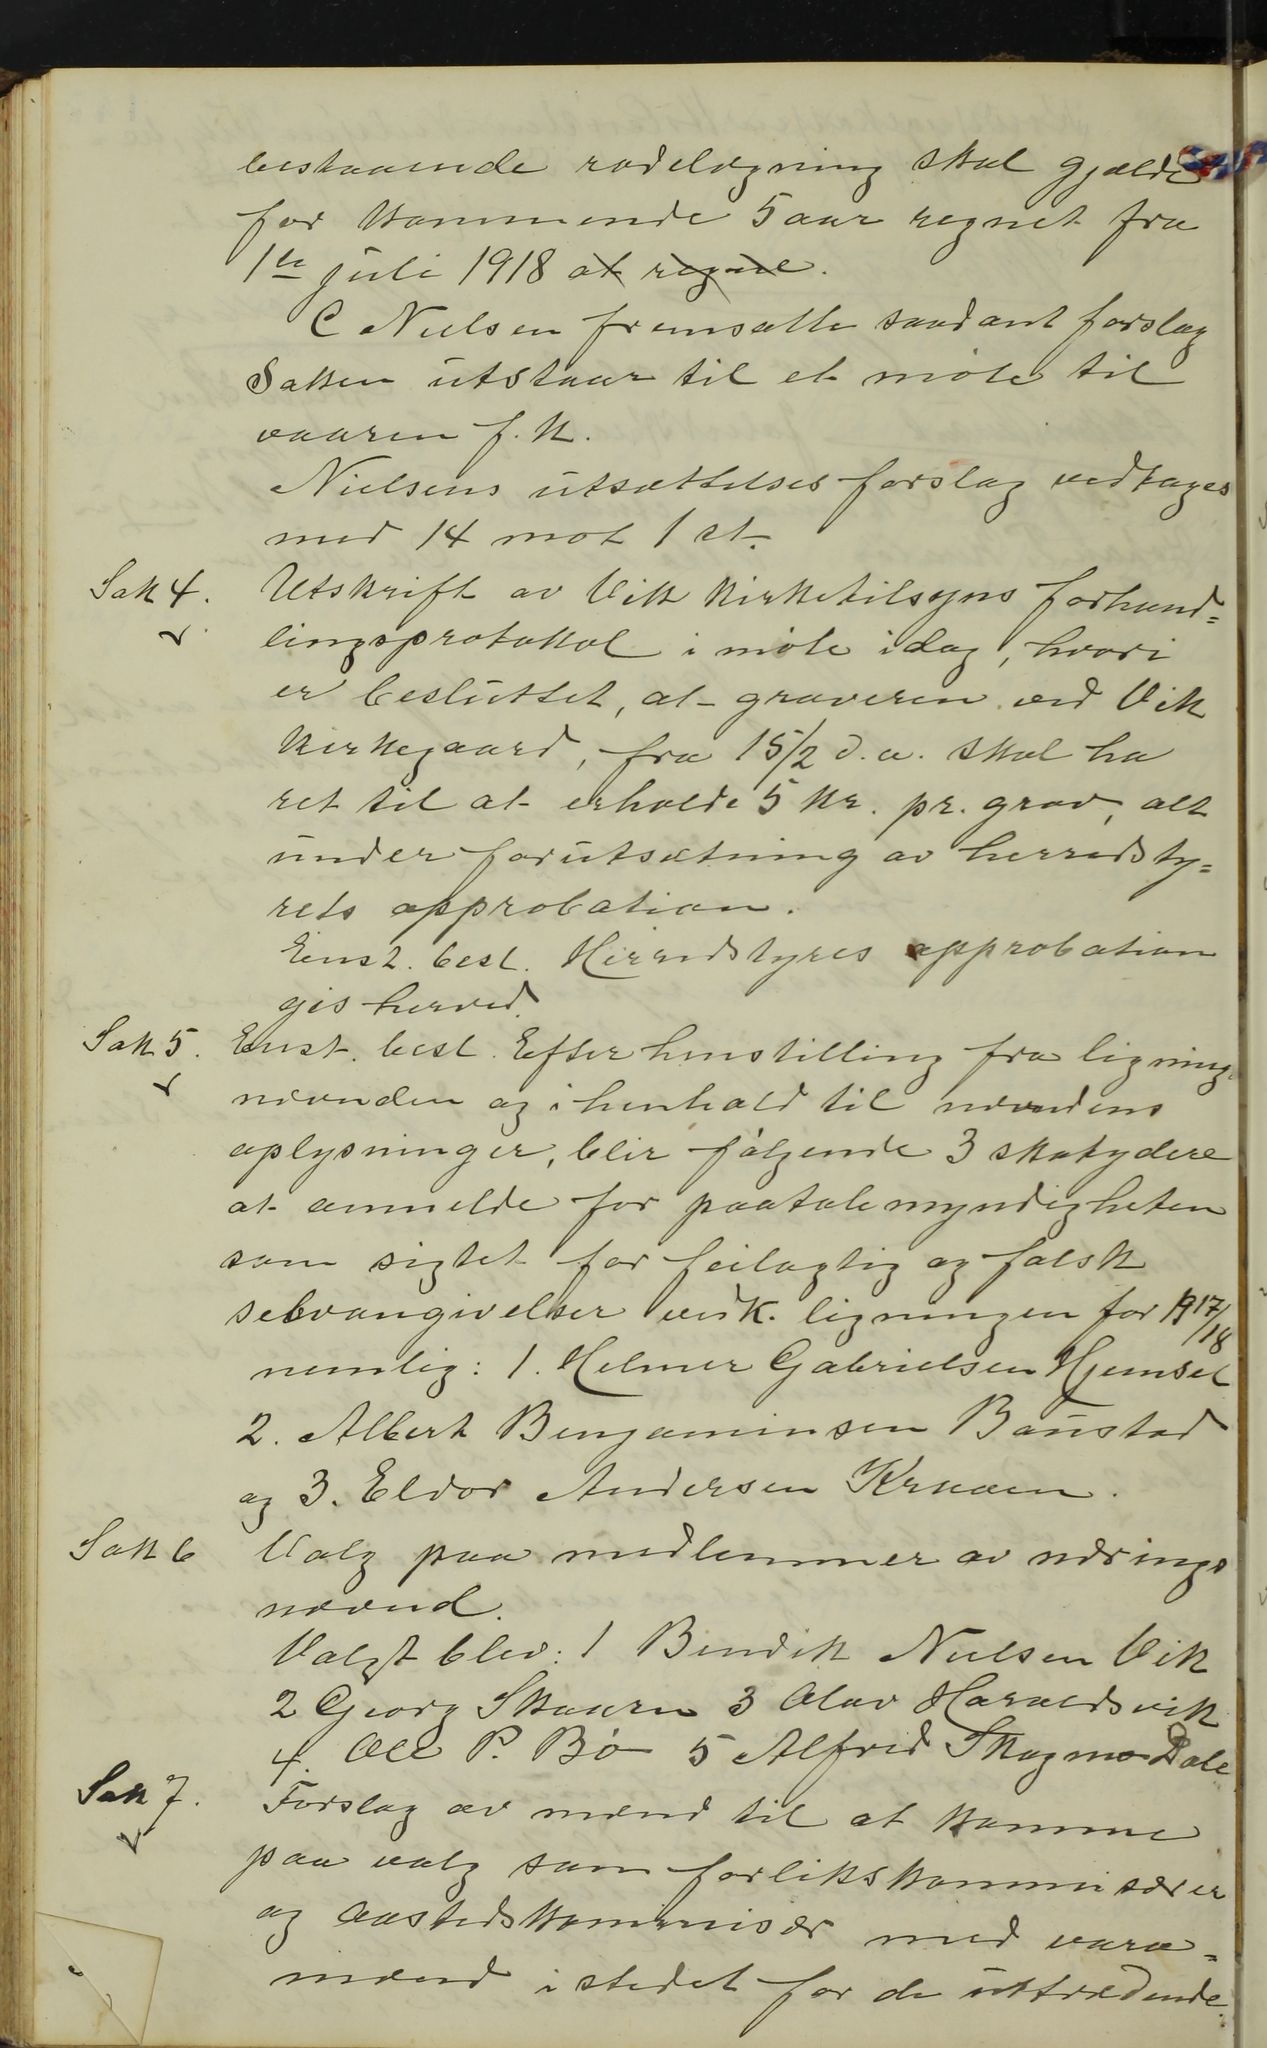 bestaaende rodelægning skal gjælde
for kommende 5 aar regnet fra
1ste juli 1918 at regne.
C Nielsen fremsatte saadant forslag
Saken utstaar til et møte til
vaaren f. k.
Nielsens utsættelsesforslag vedtages
med 14 mot 1 st.
Sak 4. Utskrift av Vik kirketilsyns forhand=
lingsprotokol i møte idag, hvori
er besluttet, at graveren ved Vik
kirkegaard, fra 15/2 d.a. skal ha
ret til at erholde 5 kr. pr. grav, alt
under forutsætning av herredsty=
rets approbation.
Enst. besl. Herredstyres approbation
gis herved.
Sak 5. Enst. besl. Efter henstilling fra lignings
nævnden og i henhold til nævndens
oplysninger, blir følgende 3 skatydere
at anmelde for paatalemyndigheten
som sigtet for feilagtig og falsk
selvangivelser vedk. ligningen for 1917/18
nemlig: 1. Helmer Gabrielsen Hjemsel
2. Albert Benjaminsen Baustad
og 3. Eldor Andersen
Sak 6 Valg paa medlemmer av nærings
nævnd.
Valgt blev: 1 Bendik Nielsen Vik
2 Georg Skaaren 3 Olav Haraldsvik
4. Ole P. Bø 5 Alfred Skagmo Dale
Sak 7. Forslag av mænd til at komme
paa valg som forlikskommisærer
og aastedskommisær med vara=
mænd i stedet for de uttrædende.